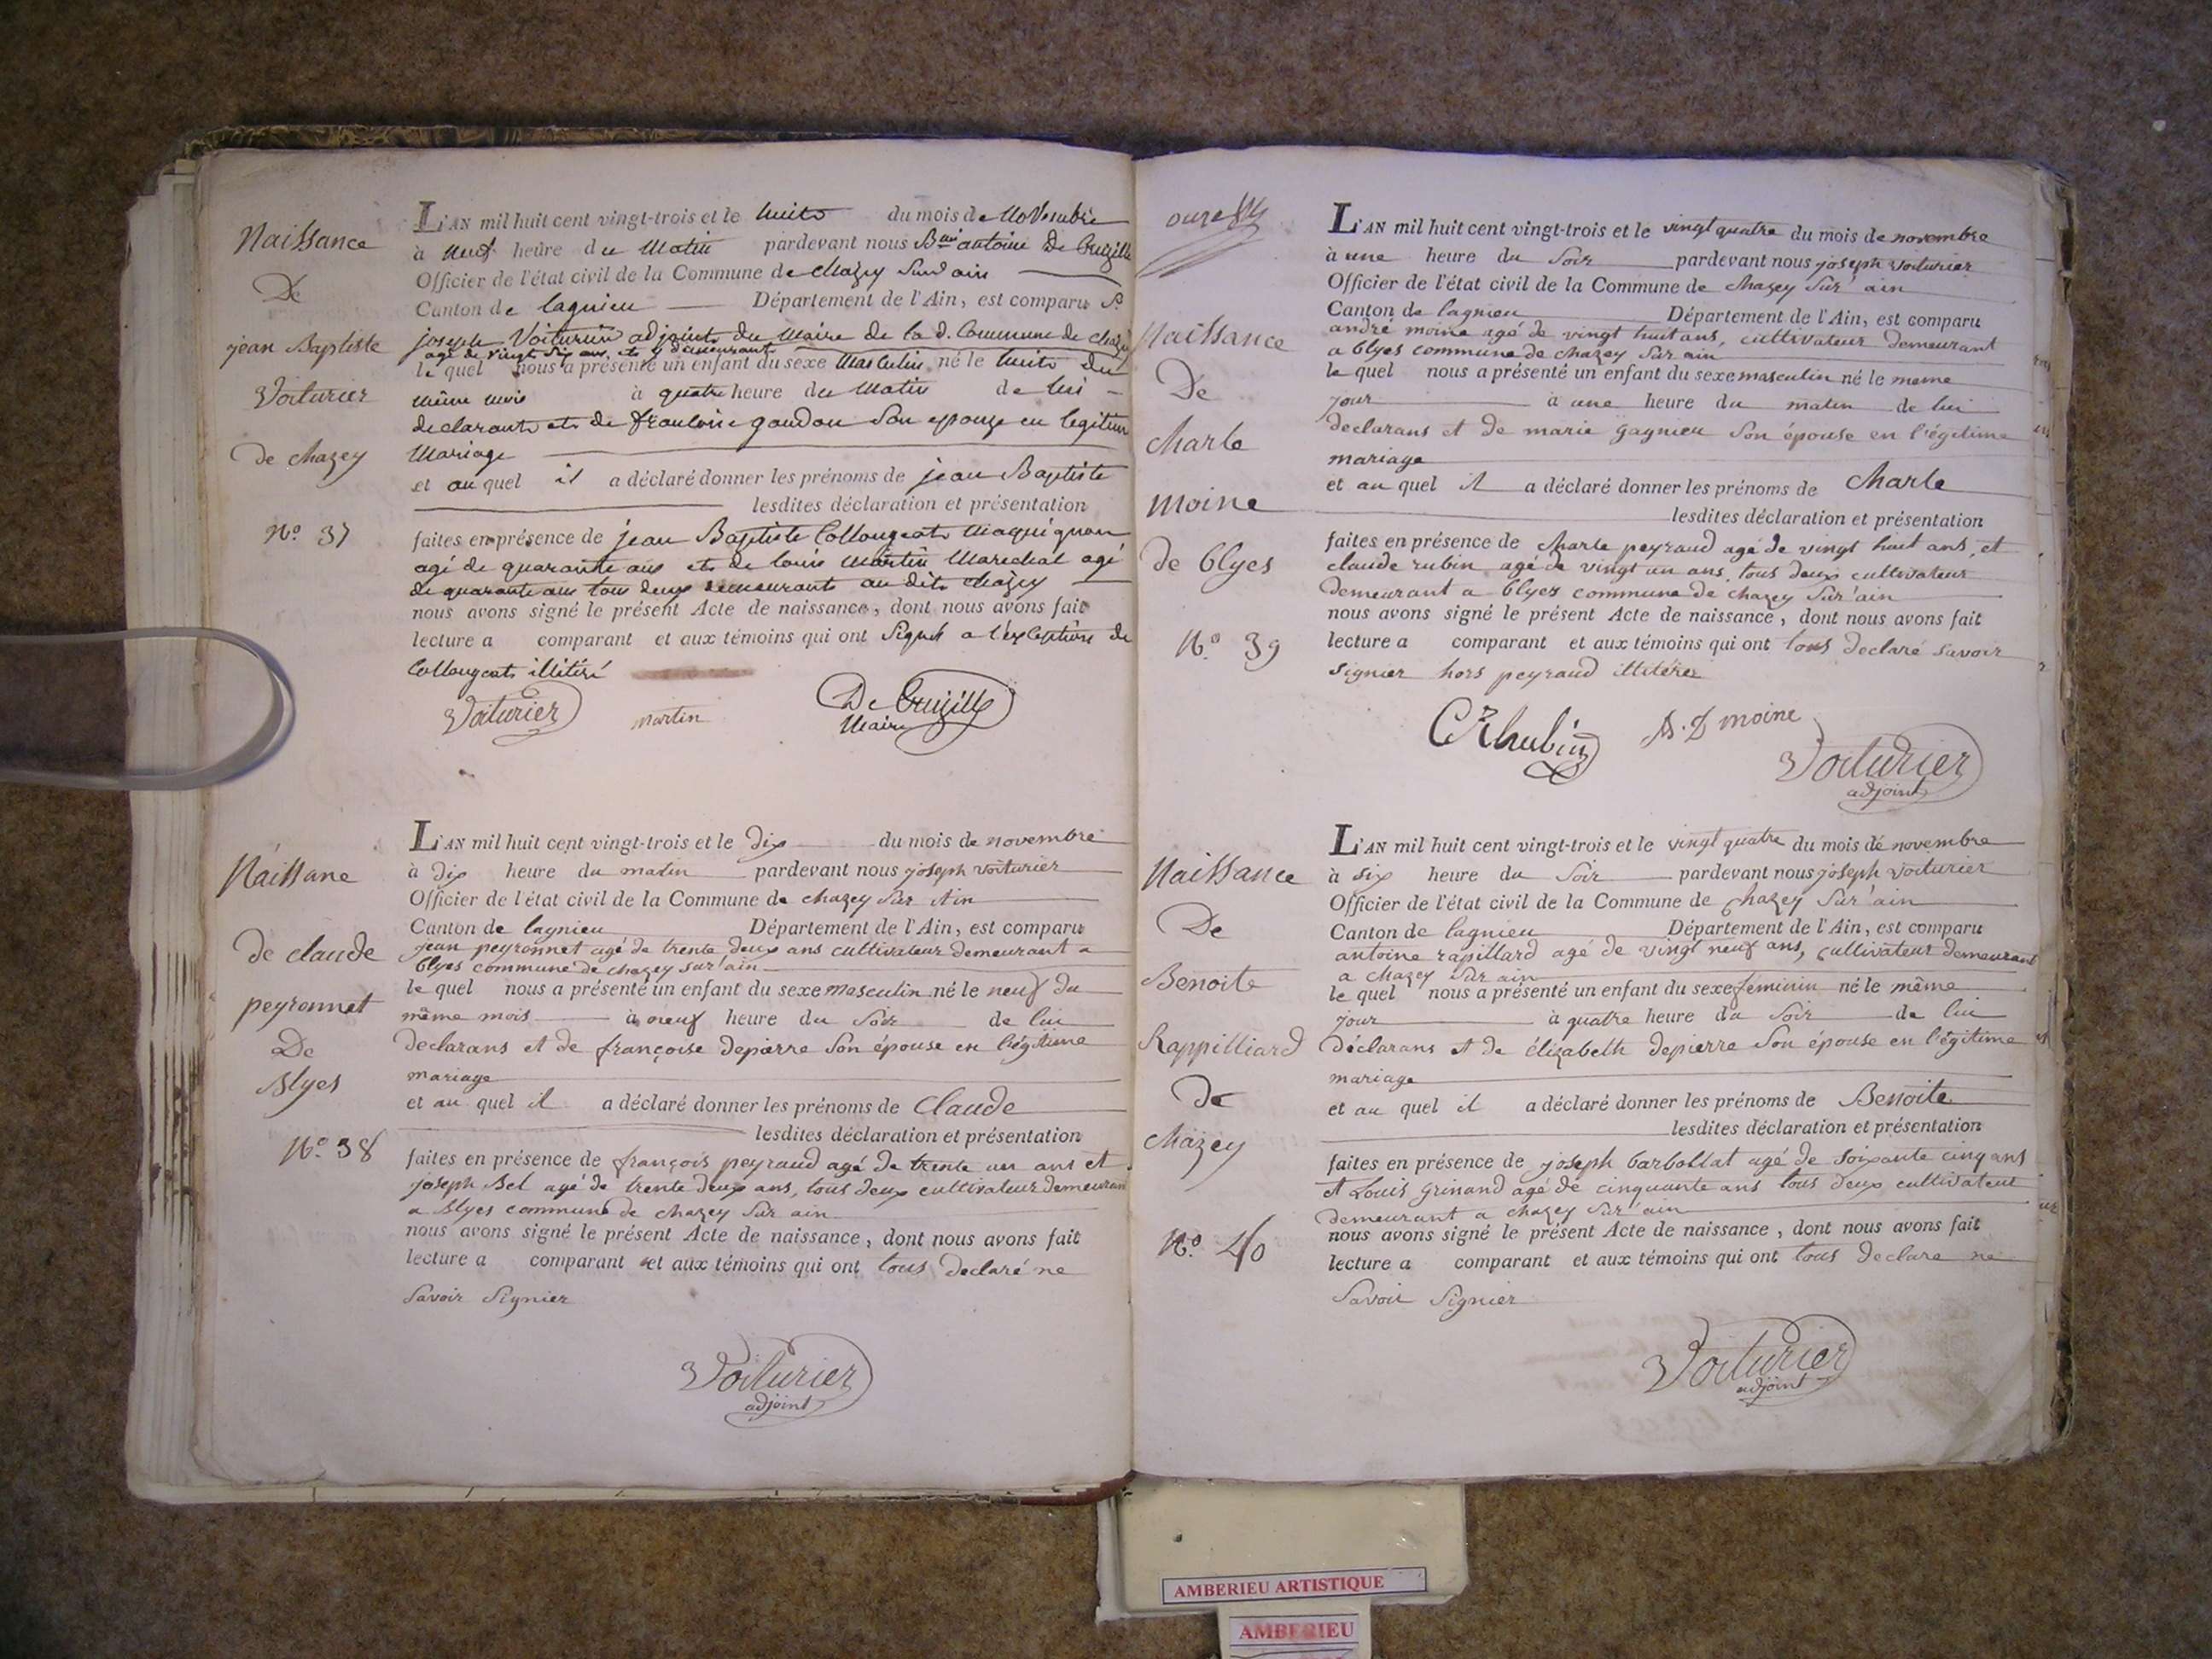 Naissance
De
jean Baptiste
Voiturier
de chazey
N.o 37
L'AN mil huit cent vingt-trois et le huit du mois de Novembre
à neuf heure du Matin pardevant nous antoine De Cruzille
Officier de l'état civil de la Commune de chazey Sur ain
Canton de lagnieu Département de l'Ain, est comparu S.
joseph Voiturier adjoint du Maire de la d. Commune de chazey
agé de vingt six ans et y demeurant
le quel nous a présenté un enfant du sexe Masculin né le huit du
même mois à quatre heure du Matin de lui
declarant et de gaudou Son epouze en legitime
Mariage
et au quel il a déclaré donner les prénoms de jean Baptiste
lesdites déclaration et présentation
faites en présence de jean Baptiste Collougeat Maquignon
agé de quarante ans et de louis Martin Marechal agé
de quarante ans tous deux demeurant au dit chazey
nous avons signé le présent Acte de naissance, dont nous avons fait
lecture a comparant et aux témoins qui ont Signé a l'exception de
Collougeat illitéré
Voiturier martin De Cruzille
Maire
Naissane
de claude
peyronnet
De
Blyes
N.o 38
L'AN mil huit cent vingt-trois et le dix du mois de novembre
à dix heure du matin pardevant nous joseph voiturier
Officier de l'état civil de la Commune de chazey sur Ain
Canton de lagnieu Département de l'Ain, est comparu
jean peyronnet agé de trente deux ans cultivateur demeurant a
blyes commune de chazey sur'ain
le quel nous a présenté un enfant du sexe masculin né le neuf du
même mois à neuf heure du soir de lui
declarans et de françoise depierre son épouse en légitime
mariage
et au quel il a déclaré donner les prénoms de Claude
lesdites déclaration et présentation
faites en présence de françois peyraud agé de trente un ans et
joseph Bel agé de trente deux ans, tous deux cultivateur demeurant
a Blyes commune de chazey sur ain
nous avons signé le présent Acte de naissance, dont nous avons fait
lecture a comparant et aux témoins qui ont tous declaré ne
savoir signier
Voiturier
adjoint
Naissance
De
charle
moine
de blyes
N.o 39
L'AN mil huit cent vingt-trois et le vingt quatre du mois de novembre
à une heure du soir pardevant nous joseph voiturier
Officier de l'état civil de la Commune de chazey sur'ain
Canton de lagnieu Département de l'Ain, est comparu
andré moine agé de vingt huit ans, cultivateur demeurant
a blyes commune de chazey sur ain
le quel nous a présenté un enfant du sexe masculin né le meme
jour à une heure du matin de lui
declarans et de marie gagnieu son épouse en légitime
mariage
et au quel il a déclaré donner les prénoms de charle
lesdites déclaration et présentation
faites en présence de charle peyraud agé de vingt huit ans, et
claude rubin agé de vingt un ans, tous deux cultivateur
demeurant a blyes commune de chazey sur'ain
nous avons signé le présent Acte de naissance, dont nous avons fait
lecture a comparant et aux témoins qui ont tous declaré savoir
signier hors peyraud illitérer
moine
Voiturier
adjoint
Naissance
De
Benoite
Rappilliard
de
chazey
N.o 40
L'AN mil huit cent vingt-trois et le vingt quatre du mois de novembre
à six heure du soir pardevant nous joseph voiturier
Officier de l'état civil de la Commune de chazey sur'ain
Canton de lagnieu Département de l'Ain, est comparu
antoine rapillard agé de vingt neuf ans, cultivateur demeurant
a chazey sur ain
le quel nous a présenté un enfant du sexe féminin né le même
jour à quatre heure du soir de lui
déclarans et de élizabeth depierre son épouse en légitime
mariage
et au quel il a déclaré donner les prénoms de Benoite
lesdites déclaration et présentation
faites en présence de joseph barbollat agé de soixante cinq ans
et Louis grinand agé de cinquante ans tous deux cultivateur
demeurant a chazey sur'ain
nous avons signé le présent Acte de naissance, dont nous avons fait
lecture a comparant et aux témoins qui ont tous declare ne
savoir signier
Voiturier
adjoint
AMBERIEU ARTISTIQUE
AMBERIEU